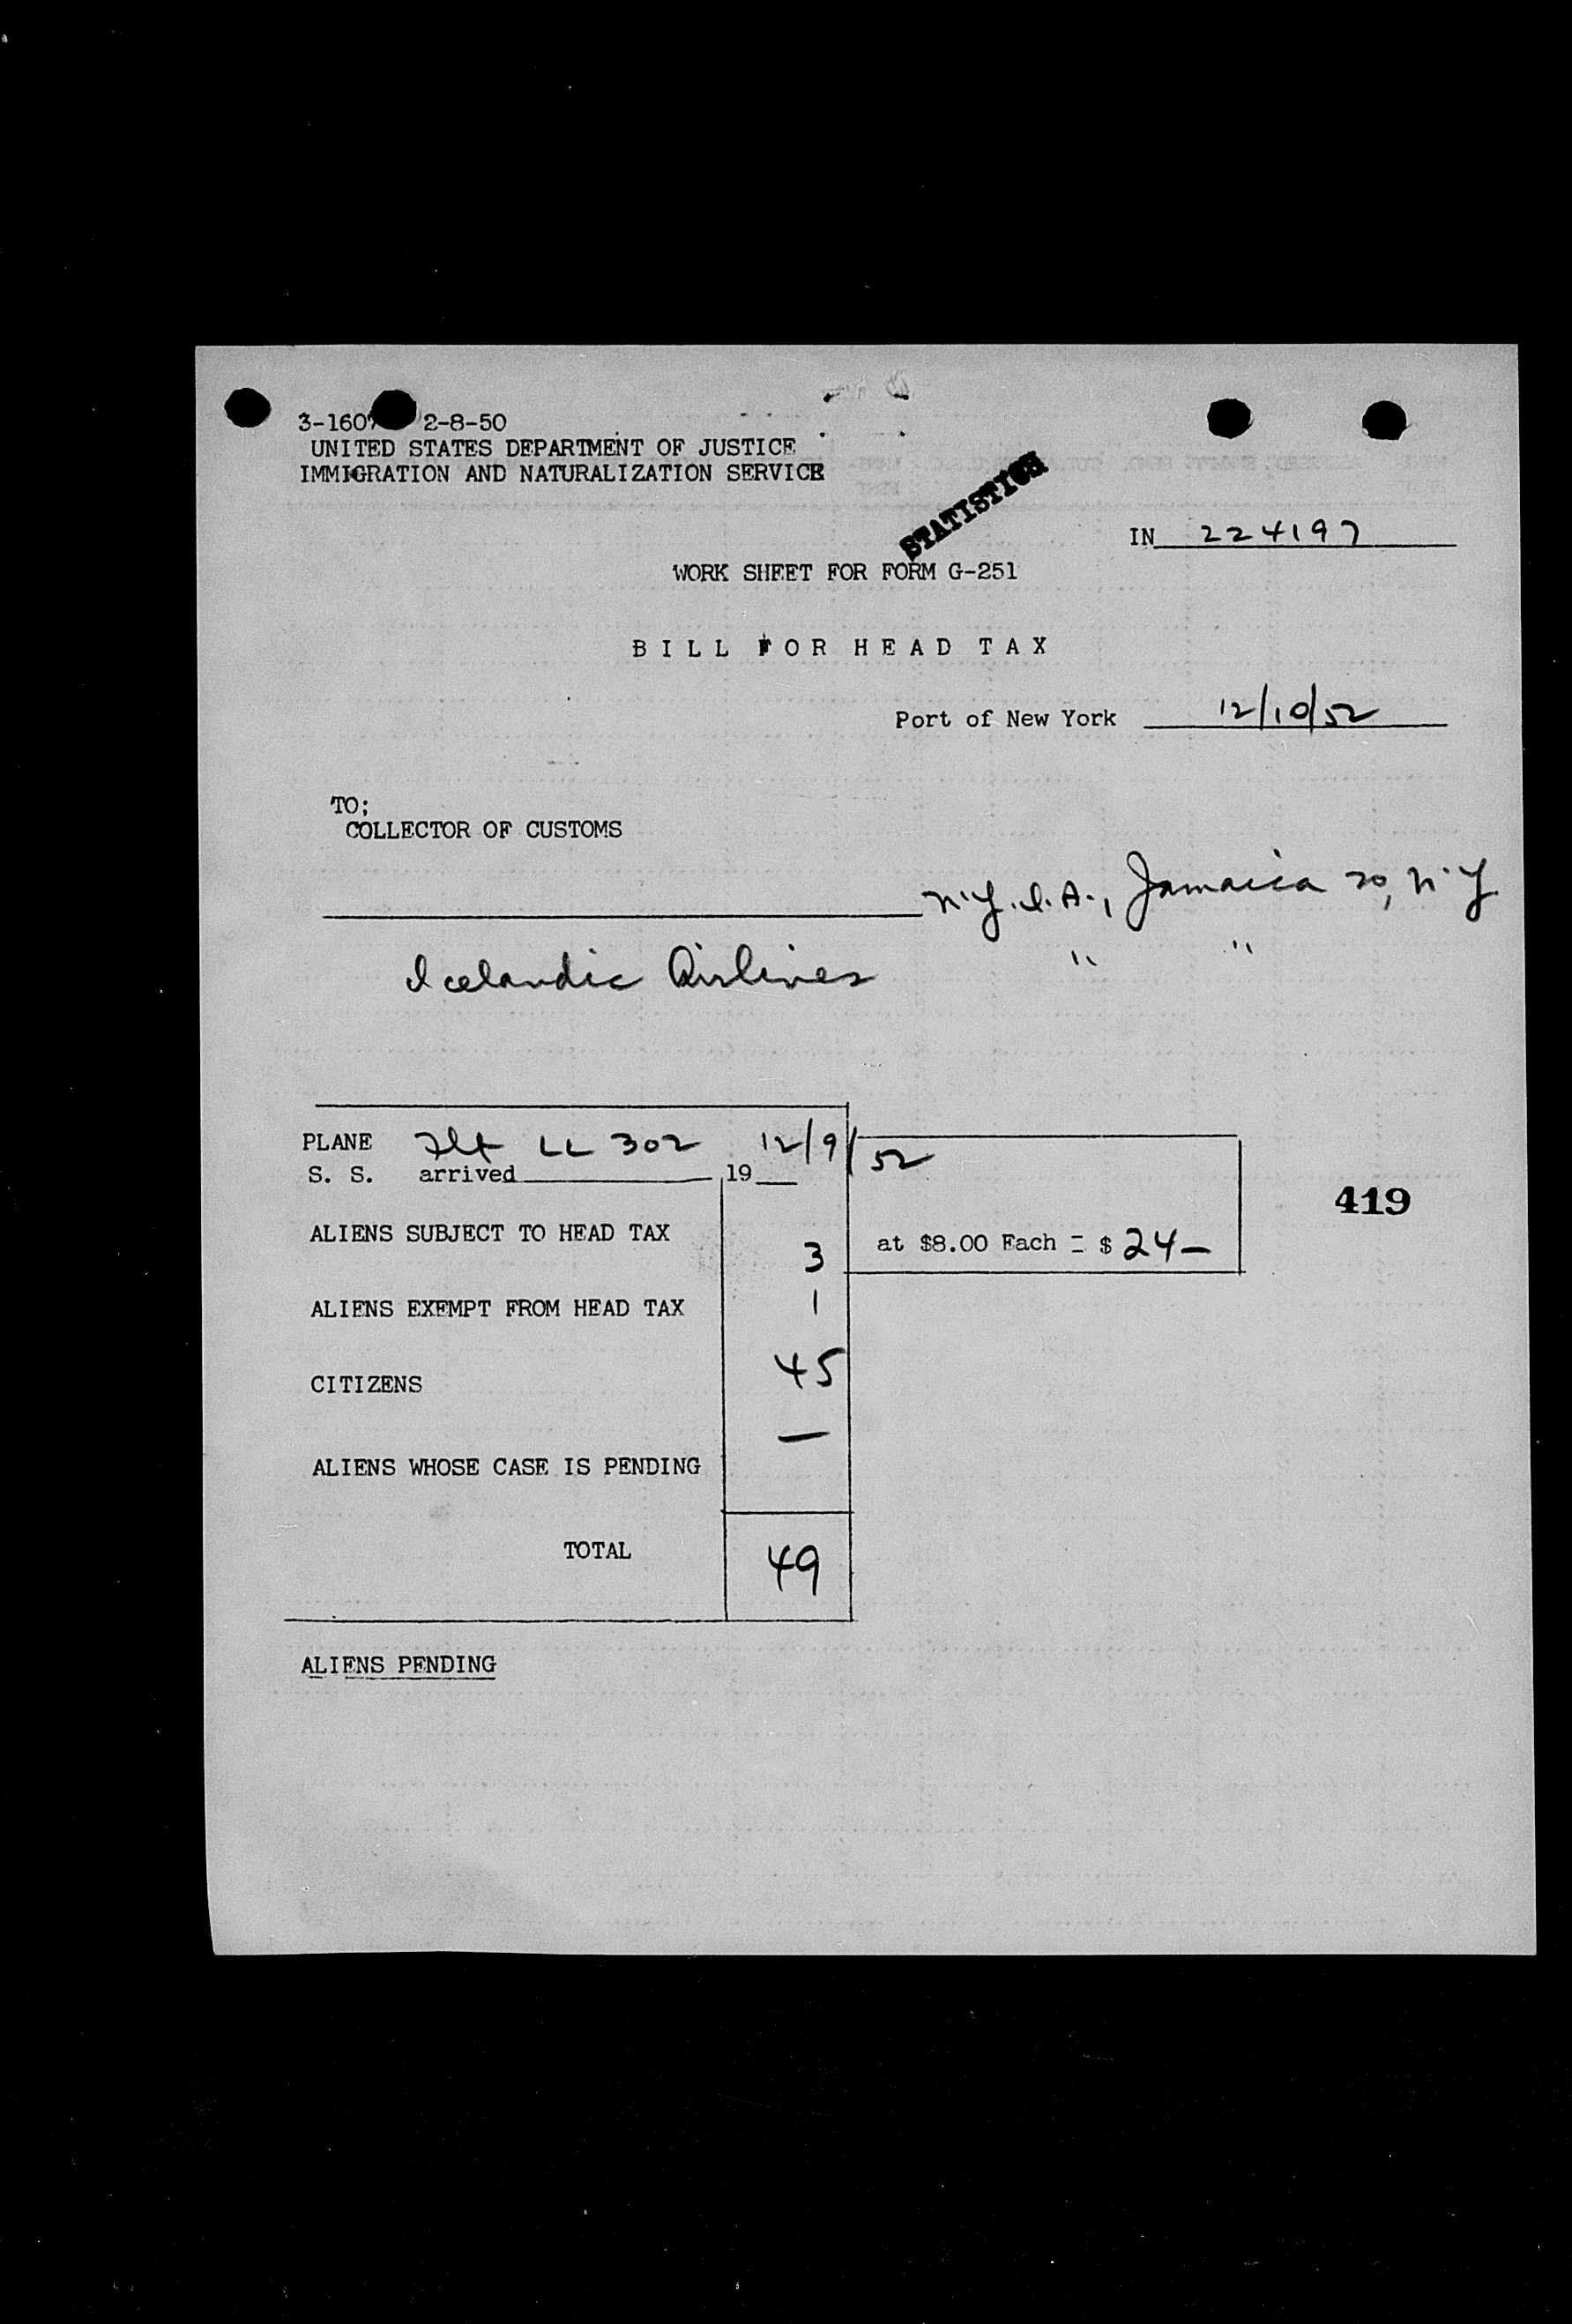 3-1607 2-8-50
UNITED STATES DEPARTMENT OF JUSTICE
IMMIGRATION AND NATURALIZATION SERVICE
STATISTICS
IN 224197
WORK SHEET FOR FORM G-251
BILL FOR HEAD TAX
Port of New York 12/10/52
TO:
COLLECTOR OF CUSTOMS
N.Y.I.A., Jamaica 30, N.Y.
Icelandic Airlines " "
PLANE Flt LL 302 12/9/52
S. S. arrived 19
419
ALIENS SUBJECT TO HEAD TAX 3 at $8.00 Each = $ 24—
ALIENS EXEMPT FROM HEAD TAX 1
CITIZENS 45
ALIENS WHOSE CASE IS PENDING —
TOTAL 49
ALIENS PENDING